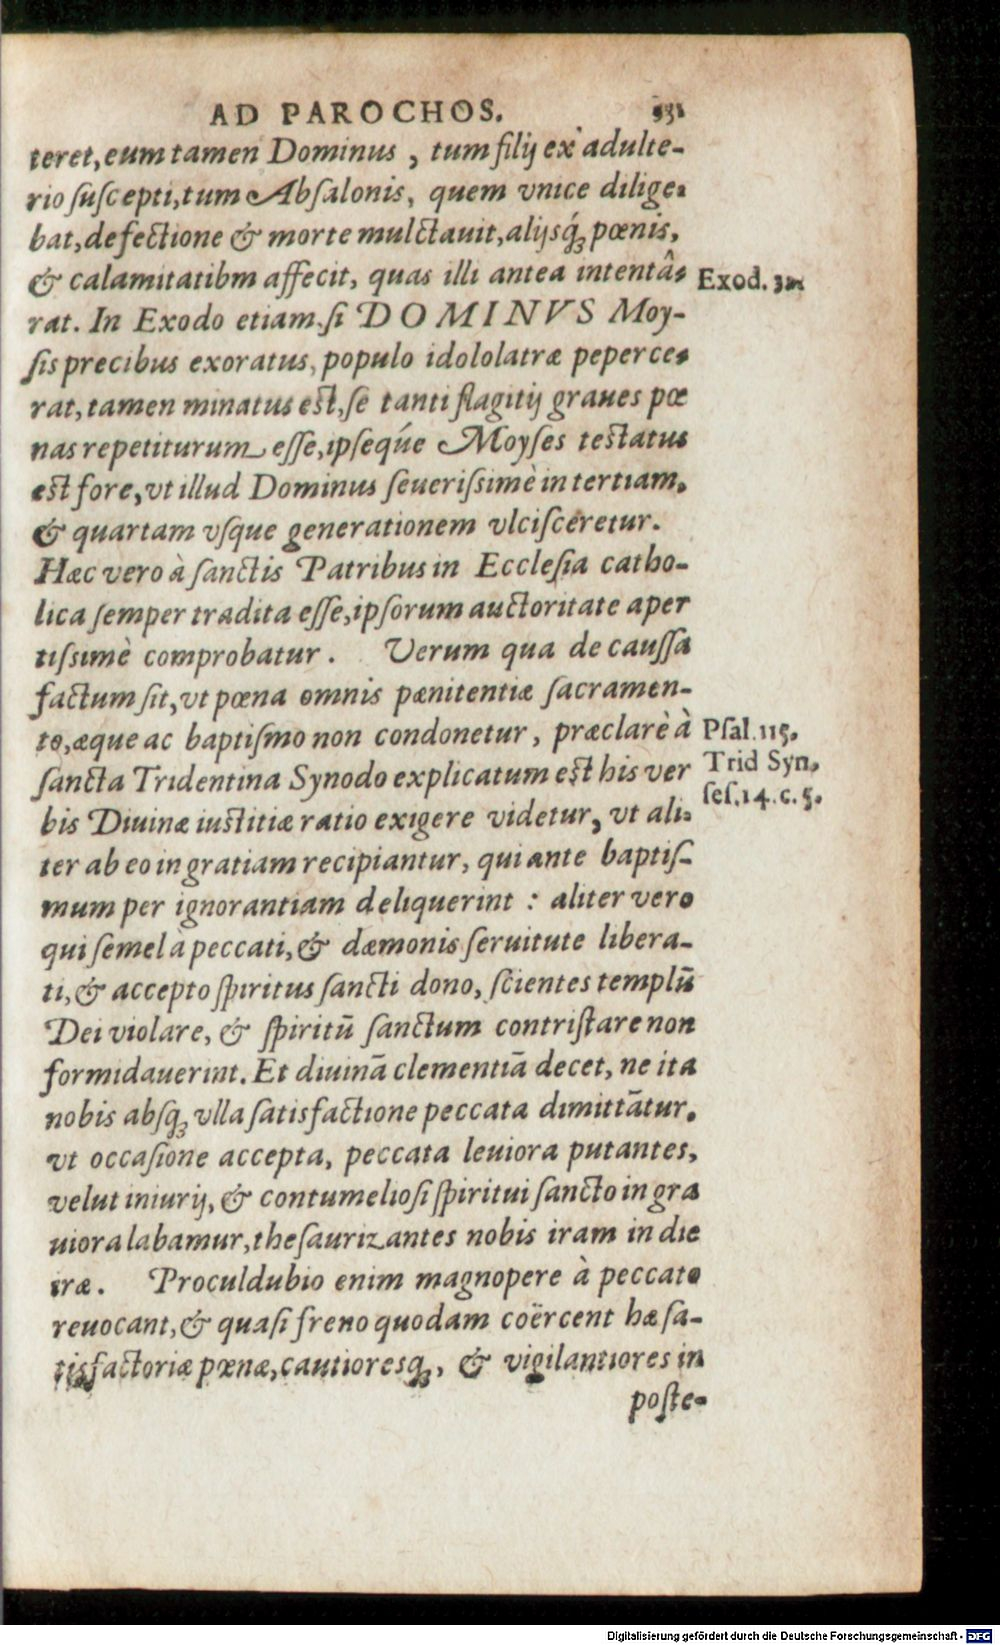 AD PAROCHOS.
teret, eum tamen Dominus, tum filij ex adulte-
rio suscepti, tum Absalonis, quem vnice dilige-
bat, defectione & morte mulctauit, alijsq́; pœnis,
& calamitatibm affecit, quas illi antea intentâ-
Exod. 32
rat. In Exodo etiam, si DOMINVS Moy-
sis precibus exoratus, populo idololatræ peperce-
rat, tamen minatus est, se tanti flagitij graues pœ
nas repetiturum esse, ipseq́ue Moyses testatus
est fore, vt illud Dominus seuerissimè in tertiam,
& quartam vsque generationem vlcisceretur.
Hæc vero à sanctis Patribus in Ecclesia catho-
lica semper tradita esse, ipsorum auctoritate aper
tissimè comprobatur. Verum qua de caussa
factum sit, vt pœna omnis pænitentiæ sacramen-
to, æque ac baptismo non condonetur, præclarè à
Psal. 115.
sancta Tridentina Synodo explicatum est his ver
Trid Syn.
ses. 14. c. 5.
bis Diuinæ iustitiæ ratio exigere videtur, vt ali-
ter ab eo in gratiam recipiantur, qui ante baptis-
mum per ignorantiam deliquerint : aliter vero
qui semel à peccati, & dæmonis seruitute libera-
ti, & accepto spiritus sancti dono, scientes templū
Dei violare, & spiritū sanctum contristare non
formidauerint. Et diuinā clementiā decet, ne ita
nobis absq; vlla satisfactione peccata dimittātur.
vt occasione accepta, peccata leuiora putantes,
velut iniurij, & contumeliosi spiritui sancto in gra
uiora labamur, thesaurizantes nobis iram in die
iræ. Proculdubio enim magnopere à peccato
reuocant, & quasi freno quodam coërcent hæ sa-
tisfactoriæ pœnæ, cautioresq;, & vigilantiores in
poste-
Digitalisierung gefördert durch die Deutsche Forschungsgemeinschaft - DFG